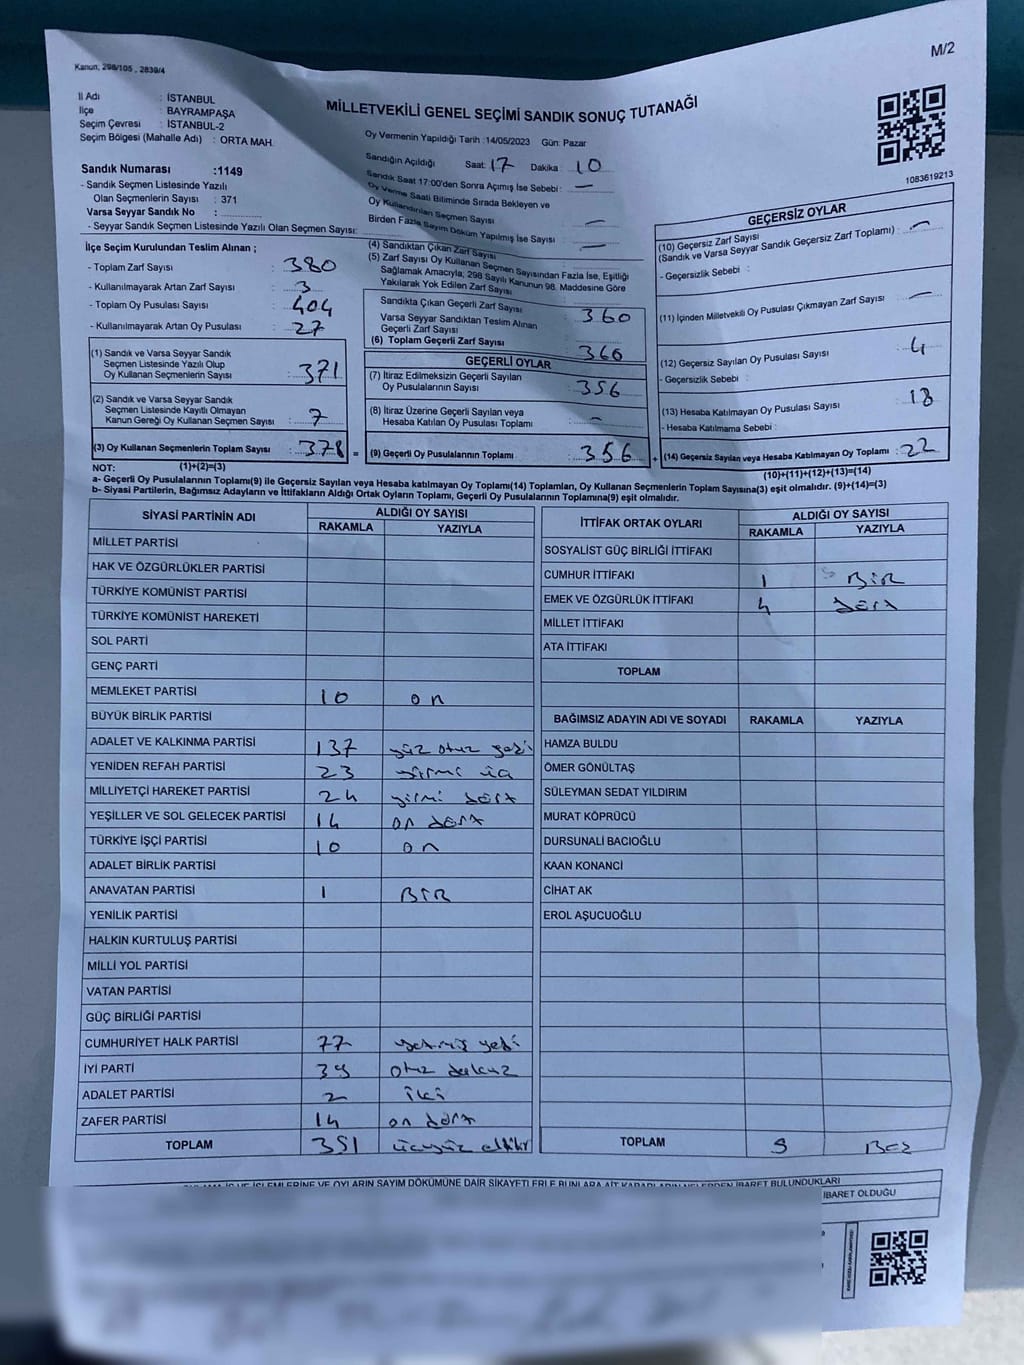 M/2
Kanun, 298/105 , 2839/4
MİLLETVEKİLİ GENEL SEÇİMİ SANDIK SONUÇ TUTANAĞI
İl Adı : İSTANBUL
İlçe : BAYRAMPAŞA
Seçim Çevresi : İSTANBUL-2
Seçim Bölgesi (Mahalle Adı) : ORTA MAH.
Oy Vermenin Yapıldığı Tarih :14/05/2023 Gün: Pazar
Sandığın Açıldığı Saat: 17 Dakika : 10
Sandık Saat 17:00'den Sonra Açımış İse Sebebi : —
Oy Verme Saati Bitiminde Sırada Bekleyen ve
Oy Kullandırılan Seçmen Sayısı : —
Birden Fazla Sayım Döküm Yapılmış İse Sayısı : —
1083619213
Sandık Numarası :1149
- Sandık Seçmen Listesinde Yazılı
Olan Seçmenlerin Sayısı : 371
Varsa Seyyar Sandık No :
- Seyyar Sandık Seçmen Listesinde Yazılı Olan Seçmen Sayısı:
İlçe Seçim Kurulundan Teslim Alınan ;
- Toplam Zarf Sayısı : 380
- Kullanılmayarak Artan Zarf Sayısı : 3
- Toplam Oy Pusulası Sayısı : 404
- Kullanılmayarak Artan Oy Pusulası : 27
(1) Sandık ve Varsa Seyyar Sandık
Seçmen Listesinde Yazılı Olup
Oy Kullanan Seçmenlerin Sayısı : 371
(2) Sandık ve Varsa Seyyar Sandık
Seçmen Listesinde Kayıtlı Olmayan
Kanun Gereği Oy Kullanan Seçmen Sayısı : 7
(3) Oy Kullanan Seçmenlerin Toplam Sayısı : 378 =
(4) Sandıktan Çıkan Zarf Sayısı
(5) Zarf Sayısı Oy Kullanan Seçmen Sayısından Fazla İse, Eşitliği
Sağlamak Amacıyla; 298 Sayılı Kanunun 98. Maddesine Göre
Yakılarak Yok Edilen Zarf Sayısı :
Sandıkta Çıkan Geçerli Zarf Sayısı : 360
Varsa Seyyar Sandıktan Teslim Alınan
Geçerli Zarf Sayısı
(6) Toplam Geçerli Zarf Sayısı : 360
GEÇERLİ OYLAR
(7) İtiraz Edilmeksizin Geçerli Sayılan
Oy Pusulalarının Sayısı : 356
(8) İtiraz Üzerine Geçerli Sayılan veya
Hesaba Katılan Oy Pusulası Toplamı : —
(9) Geçerli Oy Pusulalarının Toplamı : 356 +
GEÇERSİZ OYLAR
(10) Geçersiz Zarf Sayısı
(Sandık ve Varsa Seyyar Sandık Geçersiz Zarf Toplamı) : —
- Geçersizlik Sebebi :
(11) İçinden Milletvekili Oy Pusulası Çıkmayan Zarf Sayısı : —
(12) Geçersiz Sayılan Oy Pusulası Sayısı : 4
- Geçersizlik Sebebi :
(13) Hesaba Katılmayan Oy Pusulası Sayısı : 18
- Hesaba Katılmama Sebebi :
(14) Geçersiz Sayılan veya Hesaba Katılmayan Oy Toplamı : 22
NOT: (1)+(2)=(3)
(10)+(11)+(12)+(13)=(14)
a- Geçerli Oy Pusulalarının Toplamı(9) ile Geçersiz Sayılan veya Hesaba katılmayan Oy Toplamı(14) Toplamları, Oy Kullanan Seçmenlerin Toplam Sayısına(3) eşit olmalıdır. (9)+(14)=(3)
b- Siyasi Partilerin, Bağımsız Adayların ve İttifakların Aldığı Ortak Oyların Toplamı, Geçerli Oy Pusulalarının Toplamına(9) eşit olmalıdır.
SİYASİ PARTİNİN ADI ALDIĞI OY SAYISI
RAKAMLA YAZIYLA
MİLLET PARTİSİ
HAK VE ÖZGÜRLÜKLER PARTİSİ
TÜRKİYE KOMÜNİST PARTİSİ
TÜRKİYE KOMÜNİST HAREKETİ
SOL PARTİ
GENÇ PARTİ
MEMLEKET PARTİSİ 10 on
BÜYÜK BİRLİK PARTİSİ
ADALET VE KALKINMA PARTİSİ 137 yüz otuz yedi
YENİDEN REFAH PARTİSİ 23 yirmi üç
MİLLİYETÇİ HAREKET PARTİSİ 24 yirmi dört
YEŞİLLER VE SOL GELECEK PARTİSİ 14 on dört
TÜRKİYE İŞÇİ PARTİSİ 10 on
ADALET BİRLİK PARTİSİ
ANAVATAN PARTİSİ 1 BİR
YENİLİK PARTİSİ
HALKIN KURTULUŞ PARTİSİ
MİLLİ YOL PARTİSİ
VATAN PARTİSİ
GÜÇ BİRLİĞİ PARTİSİ
CUMHURİYET HALK PARTİSİ 77 yetmiş yedi
İYİ PARTİ 39 otuz dokuz
ADALET PARTİSİ 2 iki
ZAFER PARTİSİ 14 on dört
TOPLAM 351 üçyüz ellibir
İTTİFAK ORTAK OYLARI ALDIĞI OY SAYISI
RAKAMLA YAZIYLA
SOSYALİST GÜÇ BİRLİĞİ İTTİFAKI
CUMHUR İTTİFAKI 1 BİR
EMEK VE ÖZGÜRLÜK İTTİFAKI 4 dört
MİLLET İTTİFAKI
ATA İTTİFAKI
TOPLAM
BAĞIMSIZ ADAYIN ADI VE SOYADI RAKAMLA YAZIYLA
HAMZA BULDU
ÖMER GÖNÜLTAŞ
SÜLEYMAN SEDAT YILDIRIM
MURAT KÖPRÜCÜ
DURSUNALİ BACIOĞLU
KAAN KONANCİ
CİHAT AK
EROL AŞUCUOĞLU
TOPLAM 5 BEŞ
İŞ VE İŞLEMLERİNE VE OYLARIN SAYIM DÖKÜMÜNE DAİR ŞİKAYETLERLE BUNLARA AİT KARARLARIN NELERDEN İBARET BULUNDUKLARI
İBARET OLDUĞU